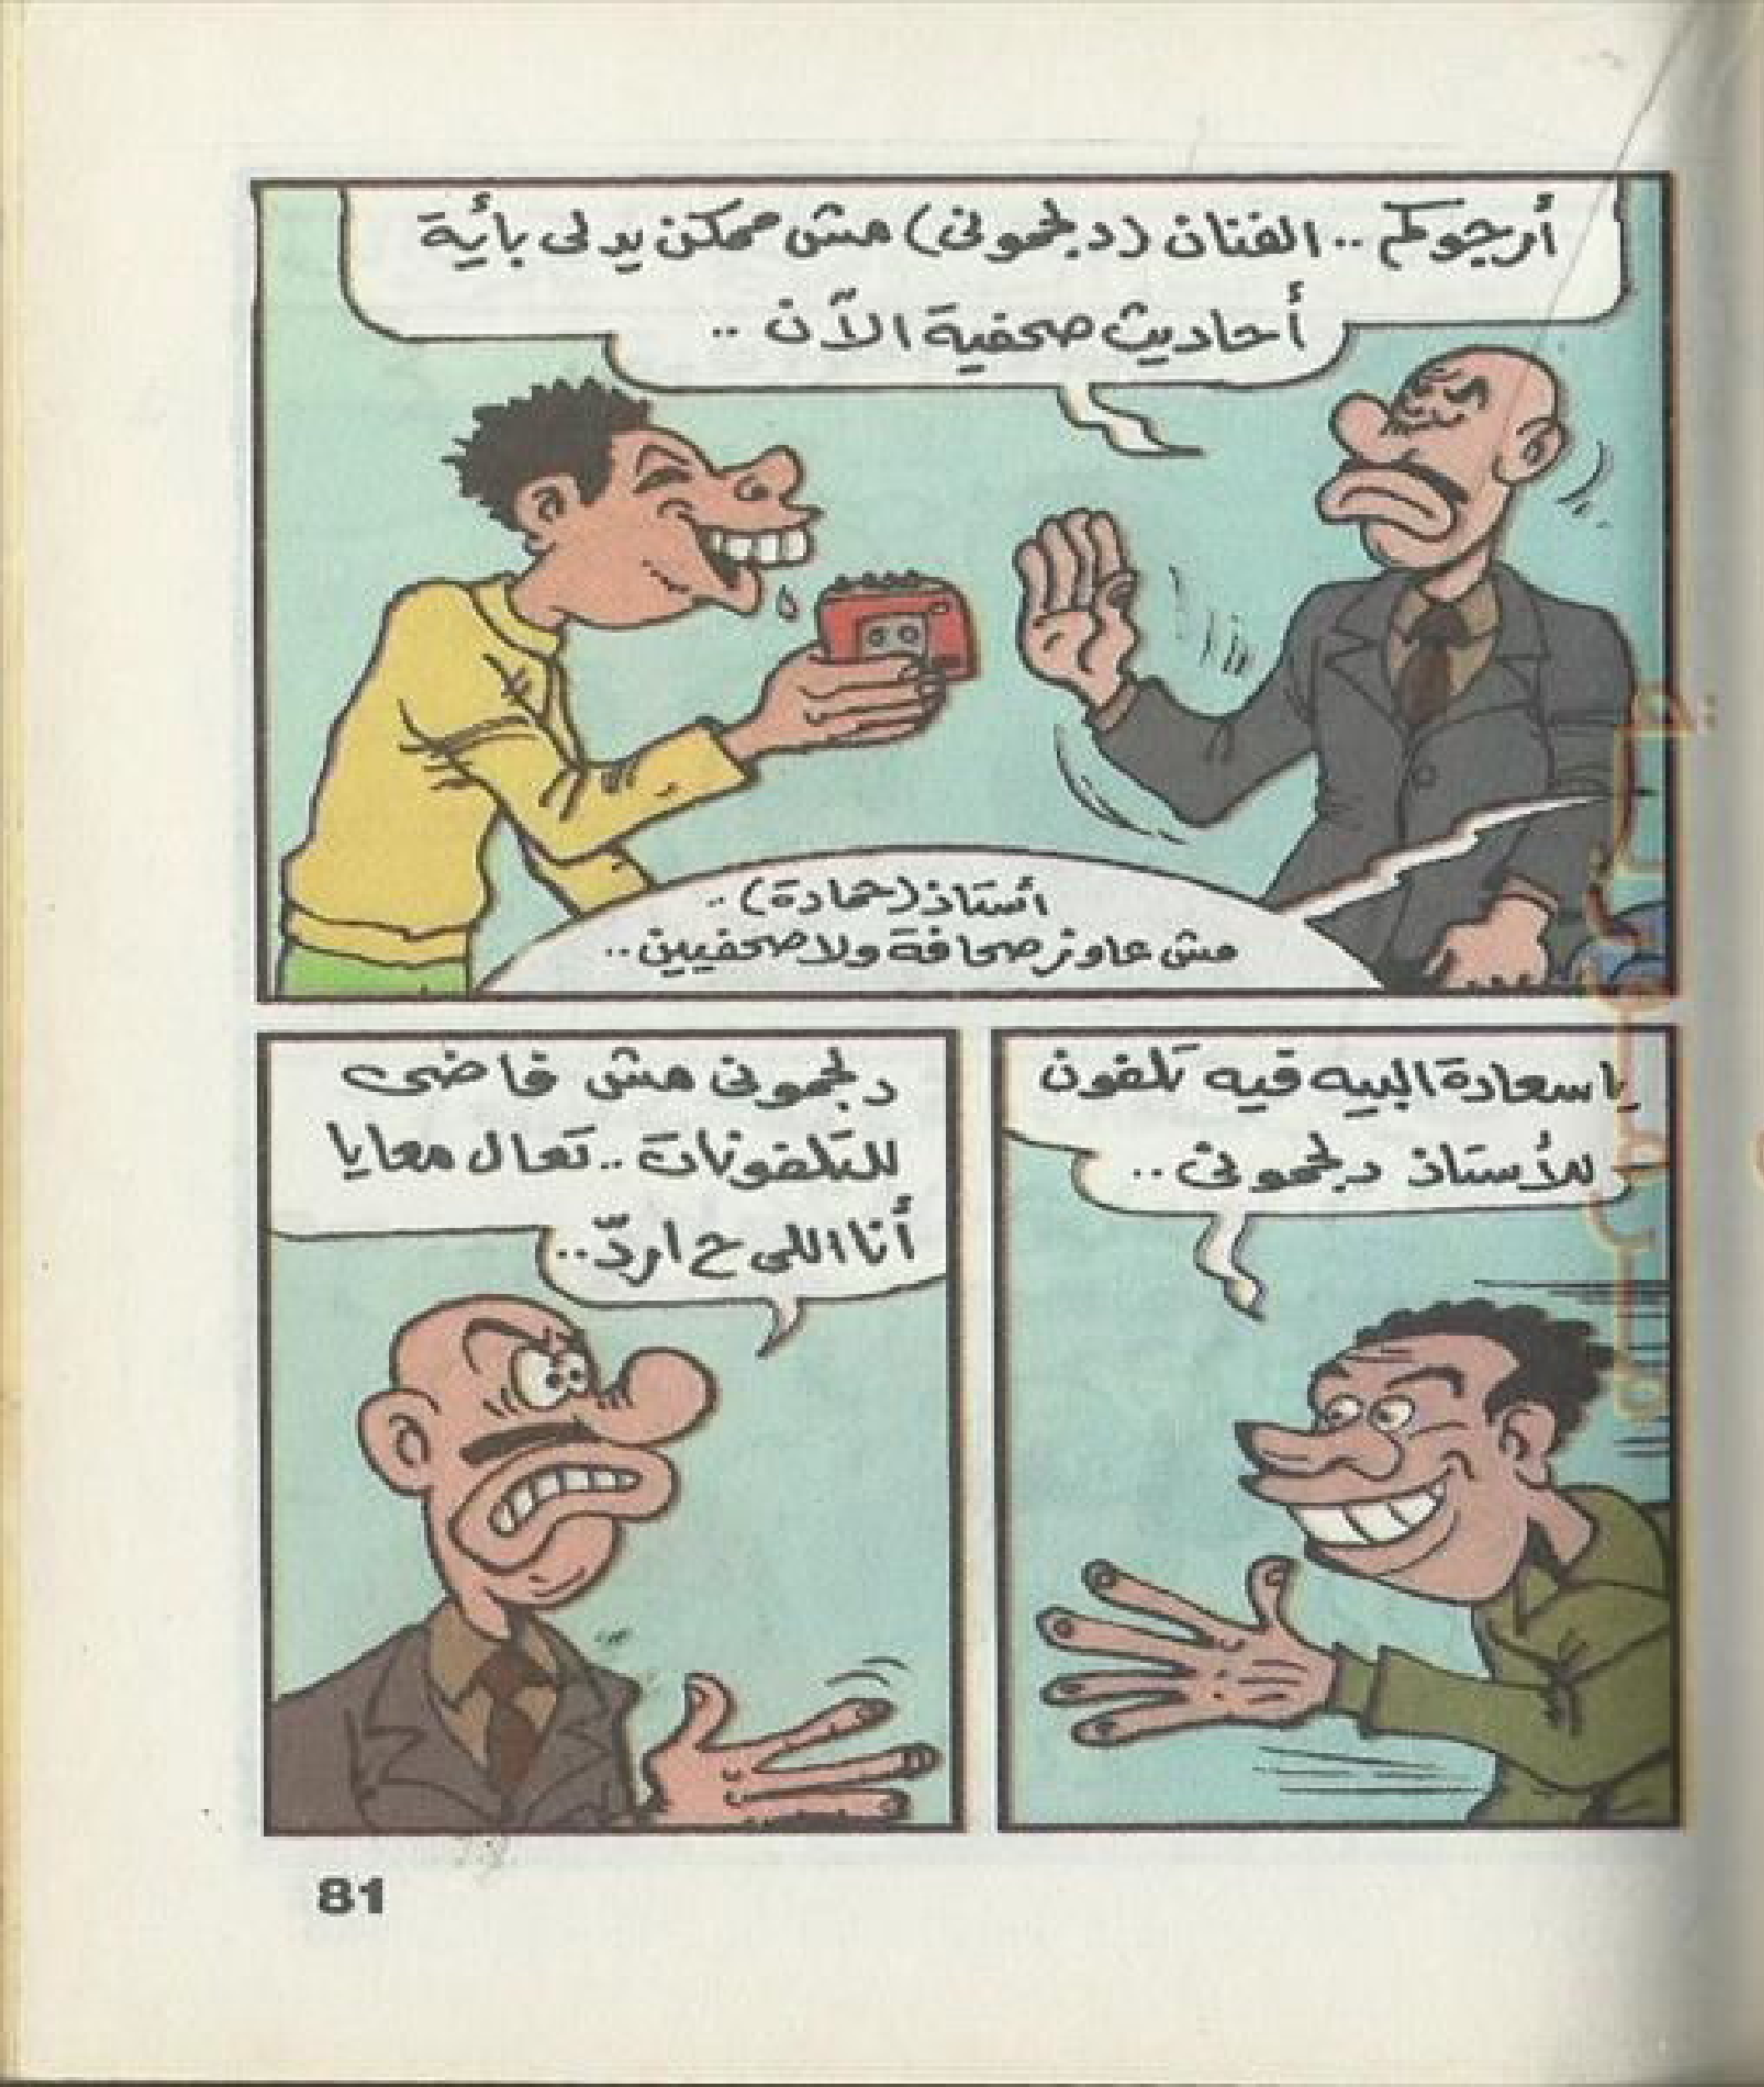 أرجوكم .. الفنان (دلجموني) مش ممكن يدلى بأية
أحاديث صحفية الآن ..
أستاذ (حمادة) ..
مش عاوز صحافة ولا صحفيين ..
يا سعادة البيه فيه تلفون
للأستاذ دلجمونى ..
دلجمونى مش فاضى
للتلفونات .. تعال معايا
أنا اللى ح اردّ ..
81